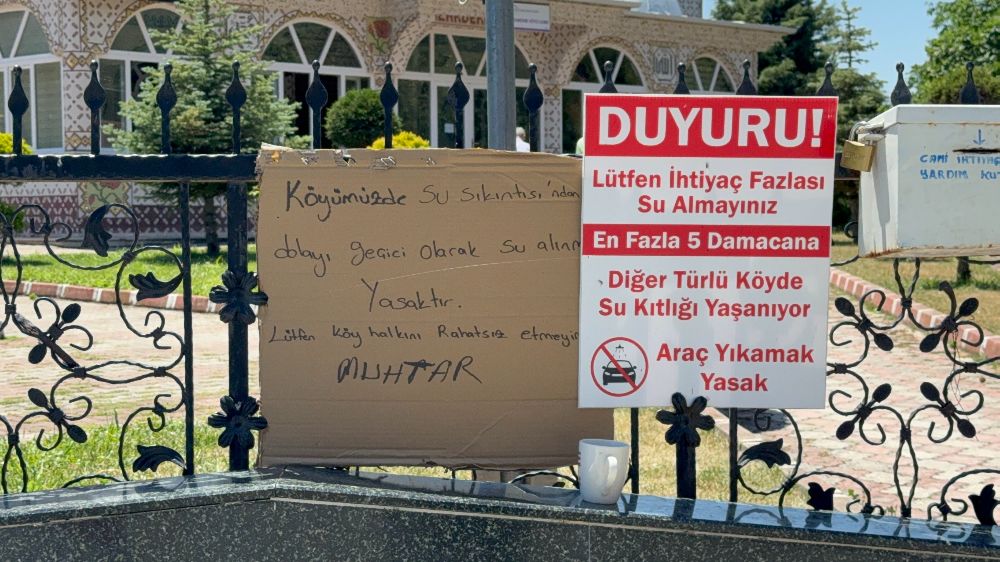 Köyümüzde su sıkıntısı'ndan
dolayı geçici olarak su
Yasaktır.
Lütfen köy halkını Rahatsız etmeyin
MUHTAR
DUYURU!
Lütfen İhtiyaç Fazlası
Su Almayınız
En Fazla 5 Damacana
Diğer Türlü Köyde
Su Kıtlığı Yaşanıyor
Araç Yıkamak
Yasak
CAMİ
YARDIM